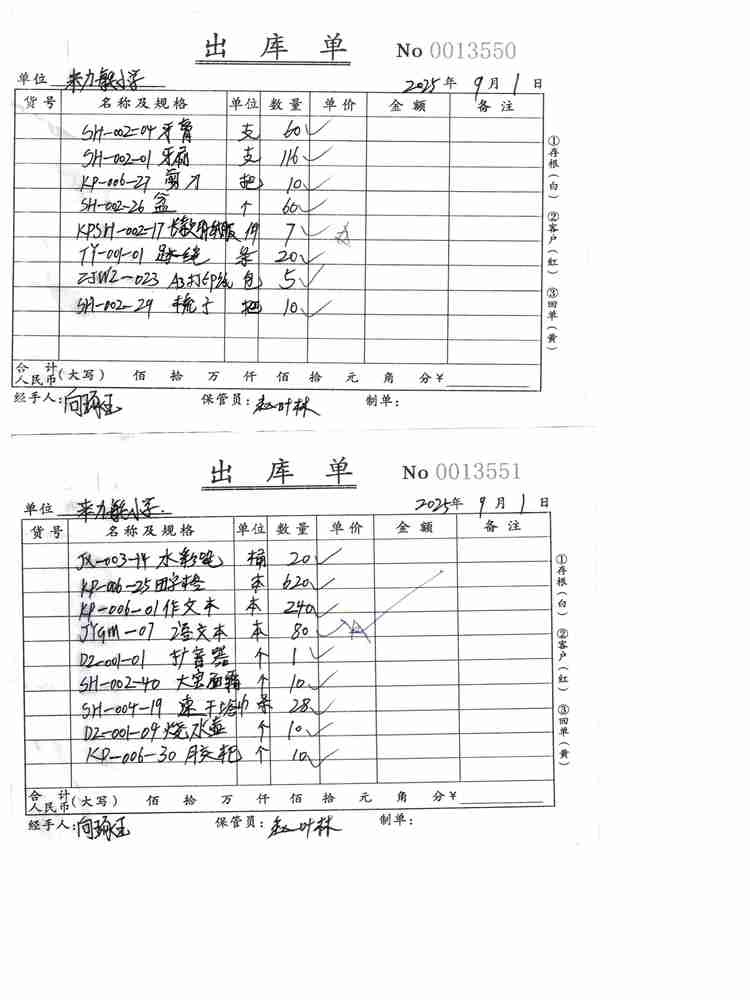 出库单 No 0013550
单位 来力敏小学 2025年 9月 1日
货号 名称及规格 单位 数量 单价 金额 备注
SH-002-04 牙膏 支 60 ✓
SH-002-01 牙刷 支 116 ✓
KP-006-27 剪刀 把 10 ✓
SH-002-26 盆 个 60 ✓
KPSH-002-17 件 7 ✓
TY-09-01 跳绳 条 20 ✓
ZJWZ-023 A3打印纸 包 5 ✓
SH-002-29 梳子 把 10 ✓
合计人民币(大写) 佰 拾 万 仟 佰 拾 元 角 分 ¥
经手人: 保管员: 赵叶林 制单:
①存根(白) ②客户(红) ③回单(黄)
出库单 No 0013551
单位 来力敏小学 2025年 9月 1日
货号 名称及规格 单位 数量 单价 金额 备注
JX-003-14 水彩笔 桶 20 ✓
KP-006-25 田字格 本 620 ✓
KP-006-01 作文本 本 240 ✓
JYGM-07 语文本 本 80 ✓
DZ-001-01 扩音器 个 1 ✓
SH-002-40 大宝面霜 个 10 ✓
SH-004-19 速干 条 28 ✓
DZ-001-09 烧水壶 个 10 ✓
KP-006-30 个 10 ✓
合计人民币(大写) 佰 拾 万 仟 佰 拾 元 角 分 ¥
经手人: 保管员: 赵叶林 制单:
①存根(白) ②客户(红) ③回单(黄)